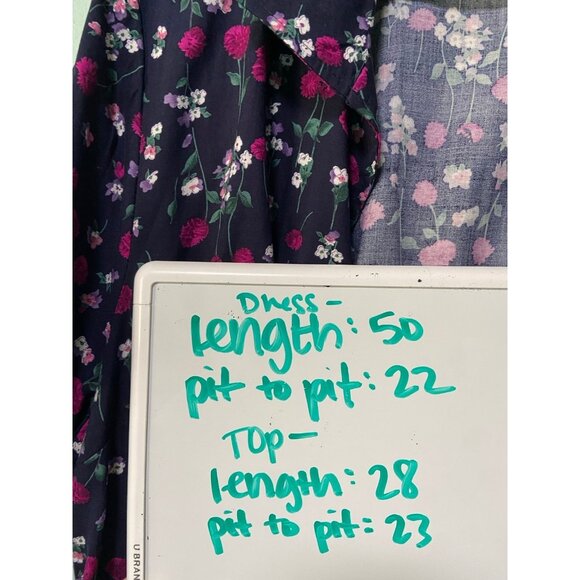 Dress -
Length: 50
pit to pit: 22
Top -
length: 28
pit to pit: 23
U BRAN